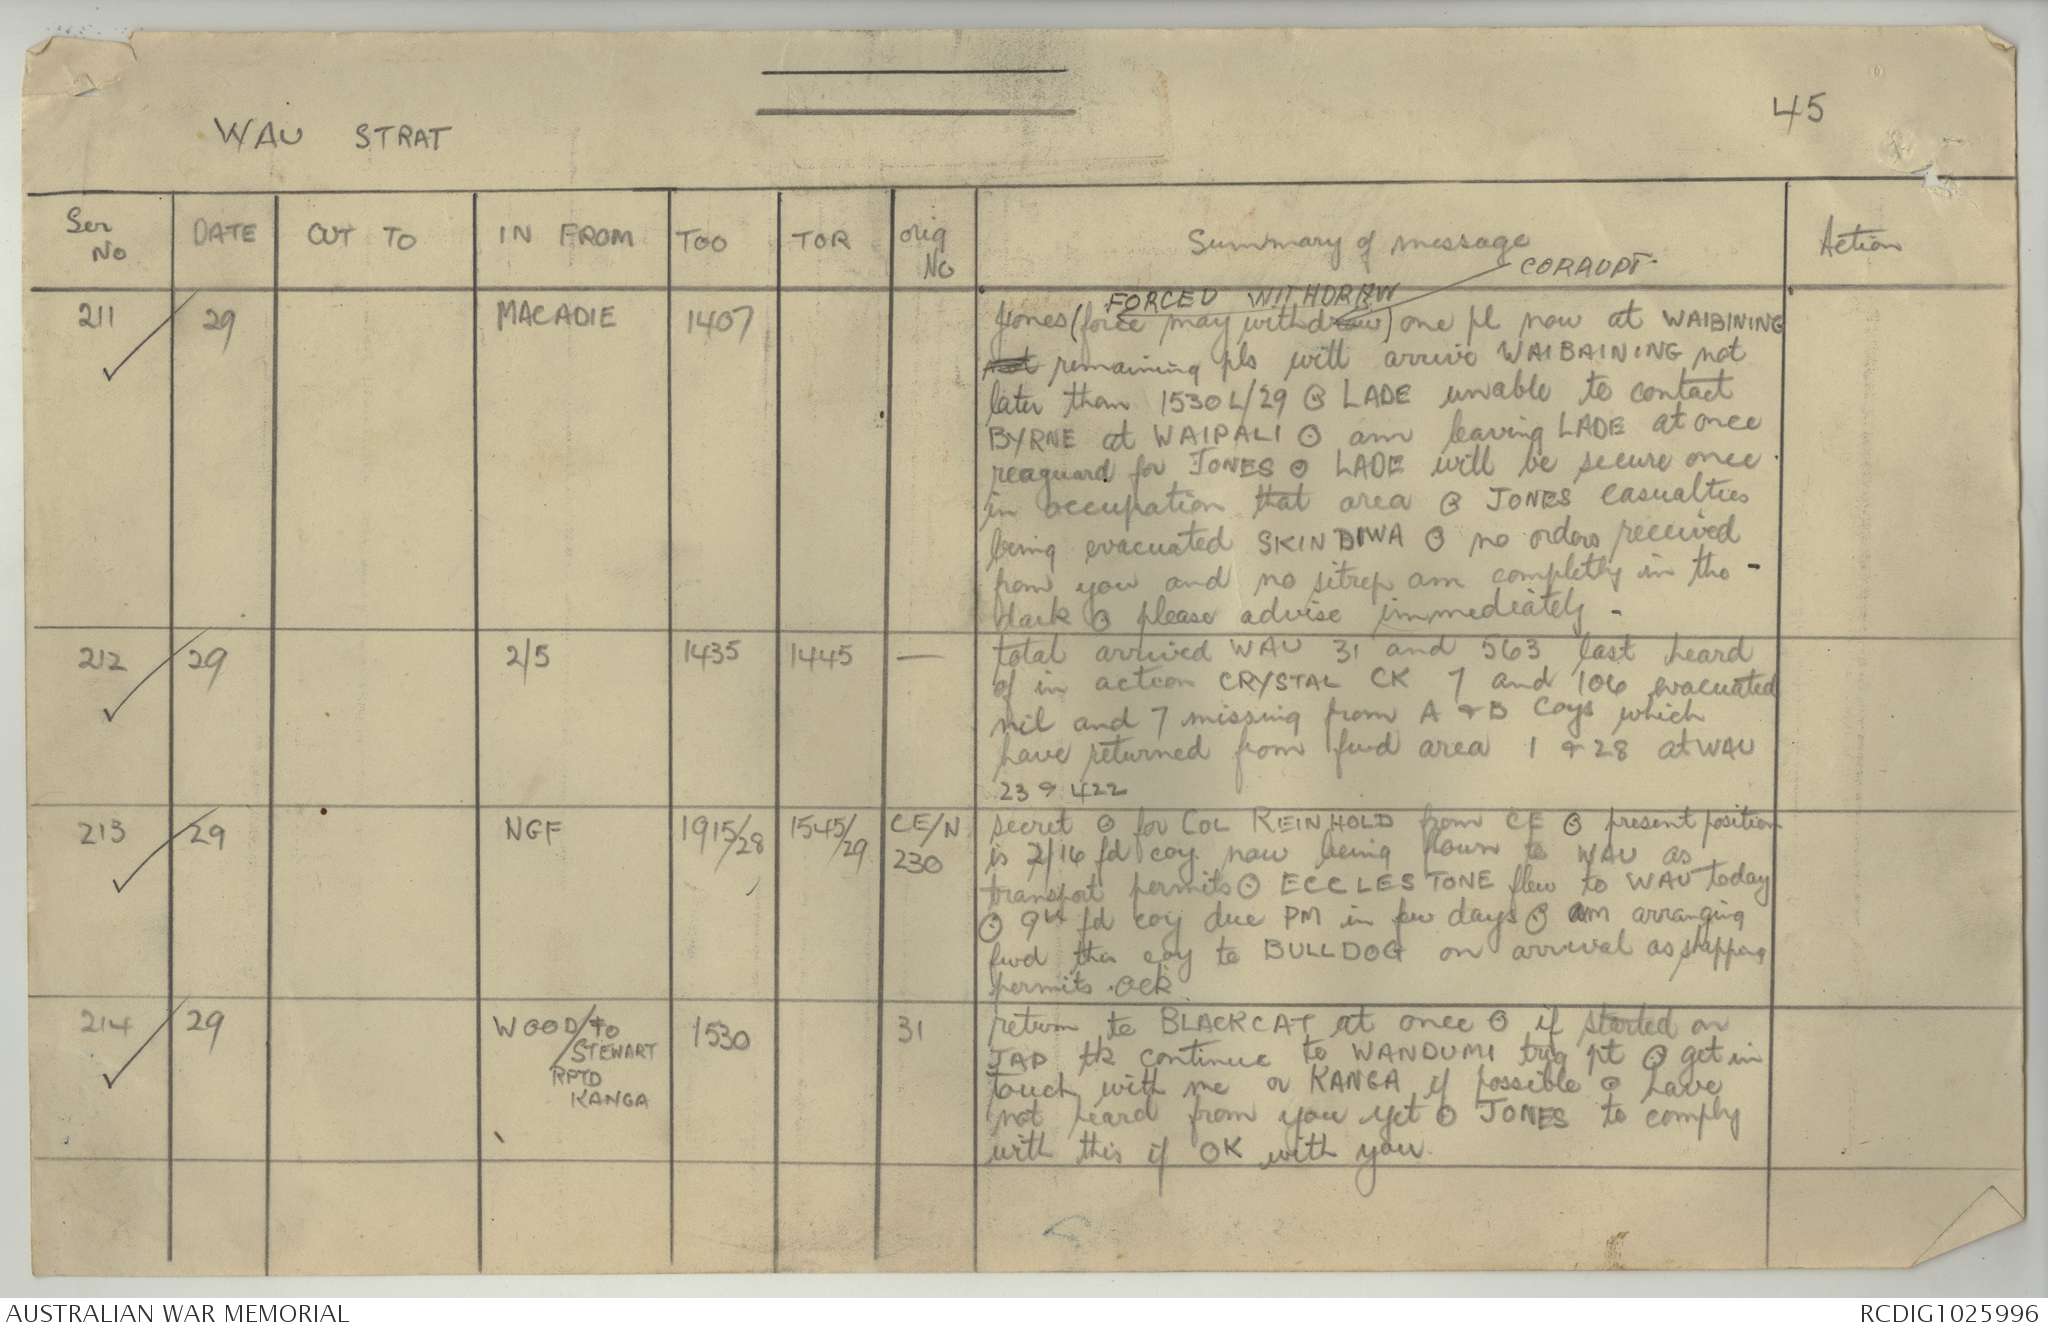 45
WAU STRAT
Ser No
DATE
OUT TO
IN FROM
TOO
TOR
orig No
Summary of message
Action
CORRUPT.
FORCED WITHDRAW
211 29 MACADIE 1407 Jones (force may withdraw) one pl now at WAIBINING
remaining pls will arrive WAIBAINING not
later than 1530L/29 ⊙ LADE unable to contact
BYRNE at WAIPALI ⊙ am leaving LADE at once
reaguard for JONES ⊙ LADE will be secure once
in occupation that area ⊙ JONES casualties
being evacuated SKINDIWA ⊙ no orders received
from you and no sitrep am completely in the -
dark ⊙ please advise immediately -
212 29 2/5 1435 1445 — total arrived WAU 31 and 563 last heard
of in action CRYSTAL CK 7 and 106 evacuated
nil and 7 missing from A & B Coys which
have returned from fwd area 1 & 28 at WAU
23 & 422
213 29 NGF 1915/28 1545/29 CE/N 230 secret ⊙ for COL REINHOLD from CE ⊙ present position
is 2/16 fd coy now being flown to WAU as
transport permits ⊙ ECCLESTONE flew to WAU today
⊙ 9th fd coy due PM in few days ⊙ am arranging
fwd this coy to BULLDOG on arrival as shipping
permits . ack
214 29 WOOD/TO STEWART RPTD KANGA 1530 31 return to BLACKCAT at once ⊙ if started on
JAP tk continue to WANDUMI trig pt ⊙ get in
touch with me or KANGA if possible ⊙ have
not heard from you yet ⊙ JONES to comply
with this if OK with you.
AUSTRALIAN WAR MEMORIAL
RCDIG1025996